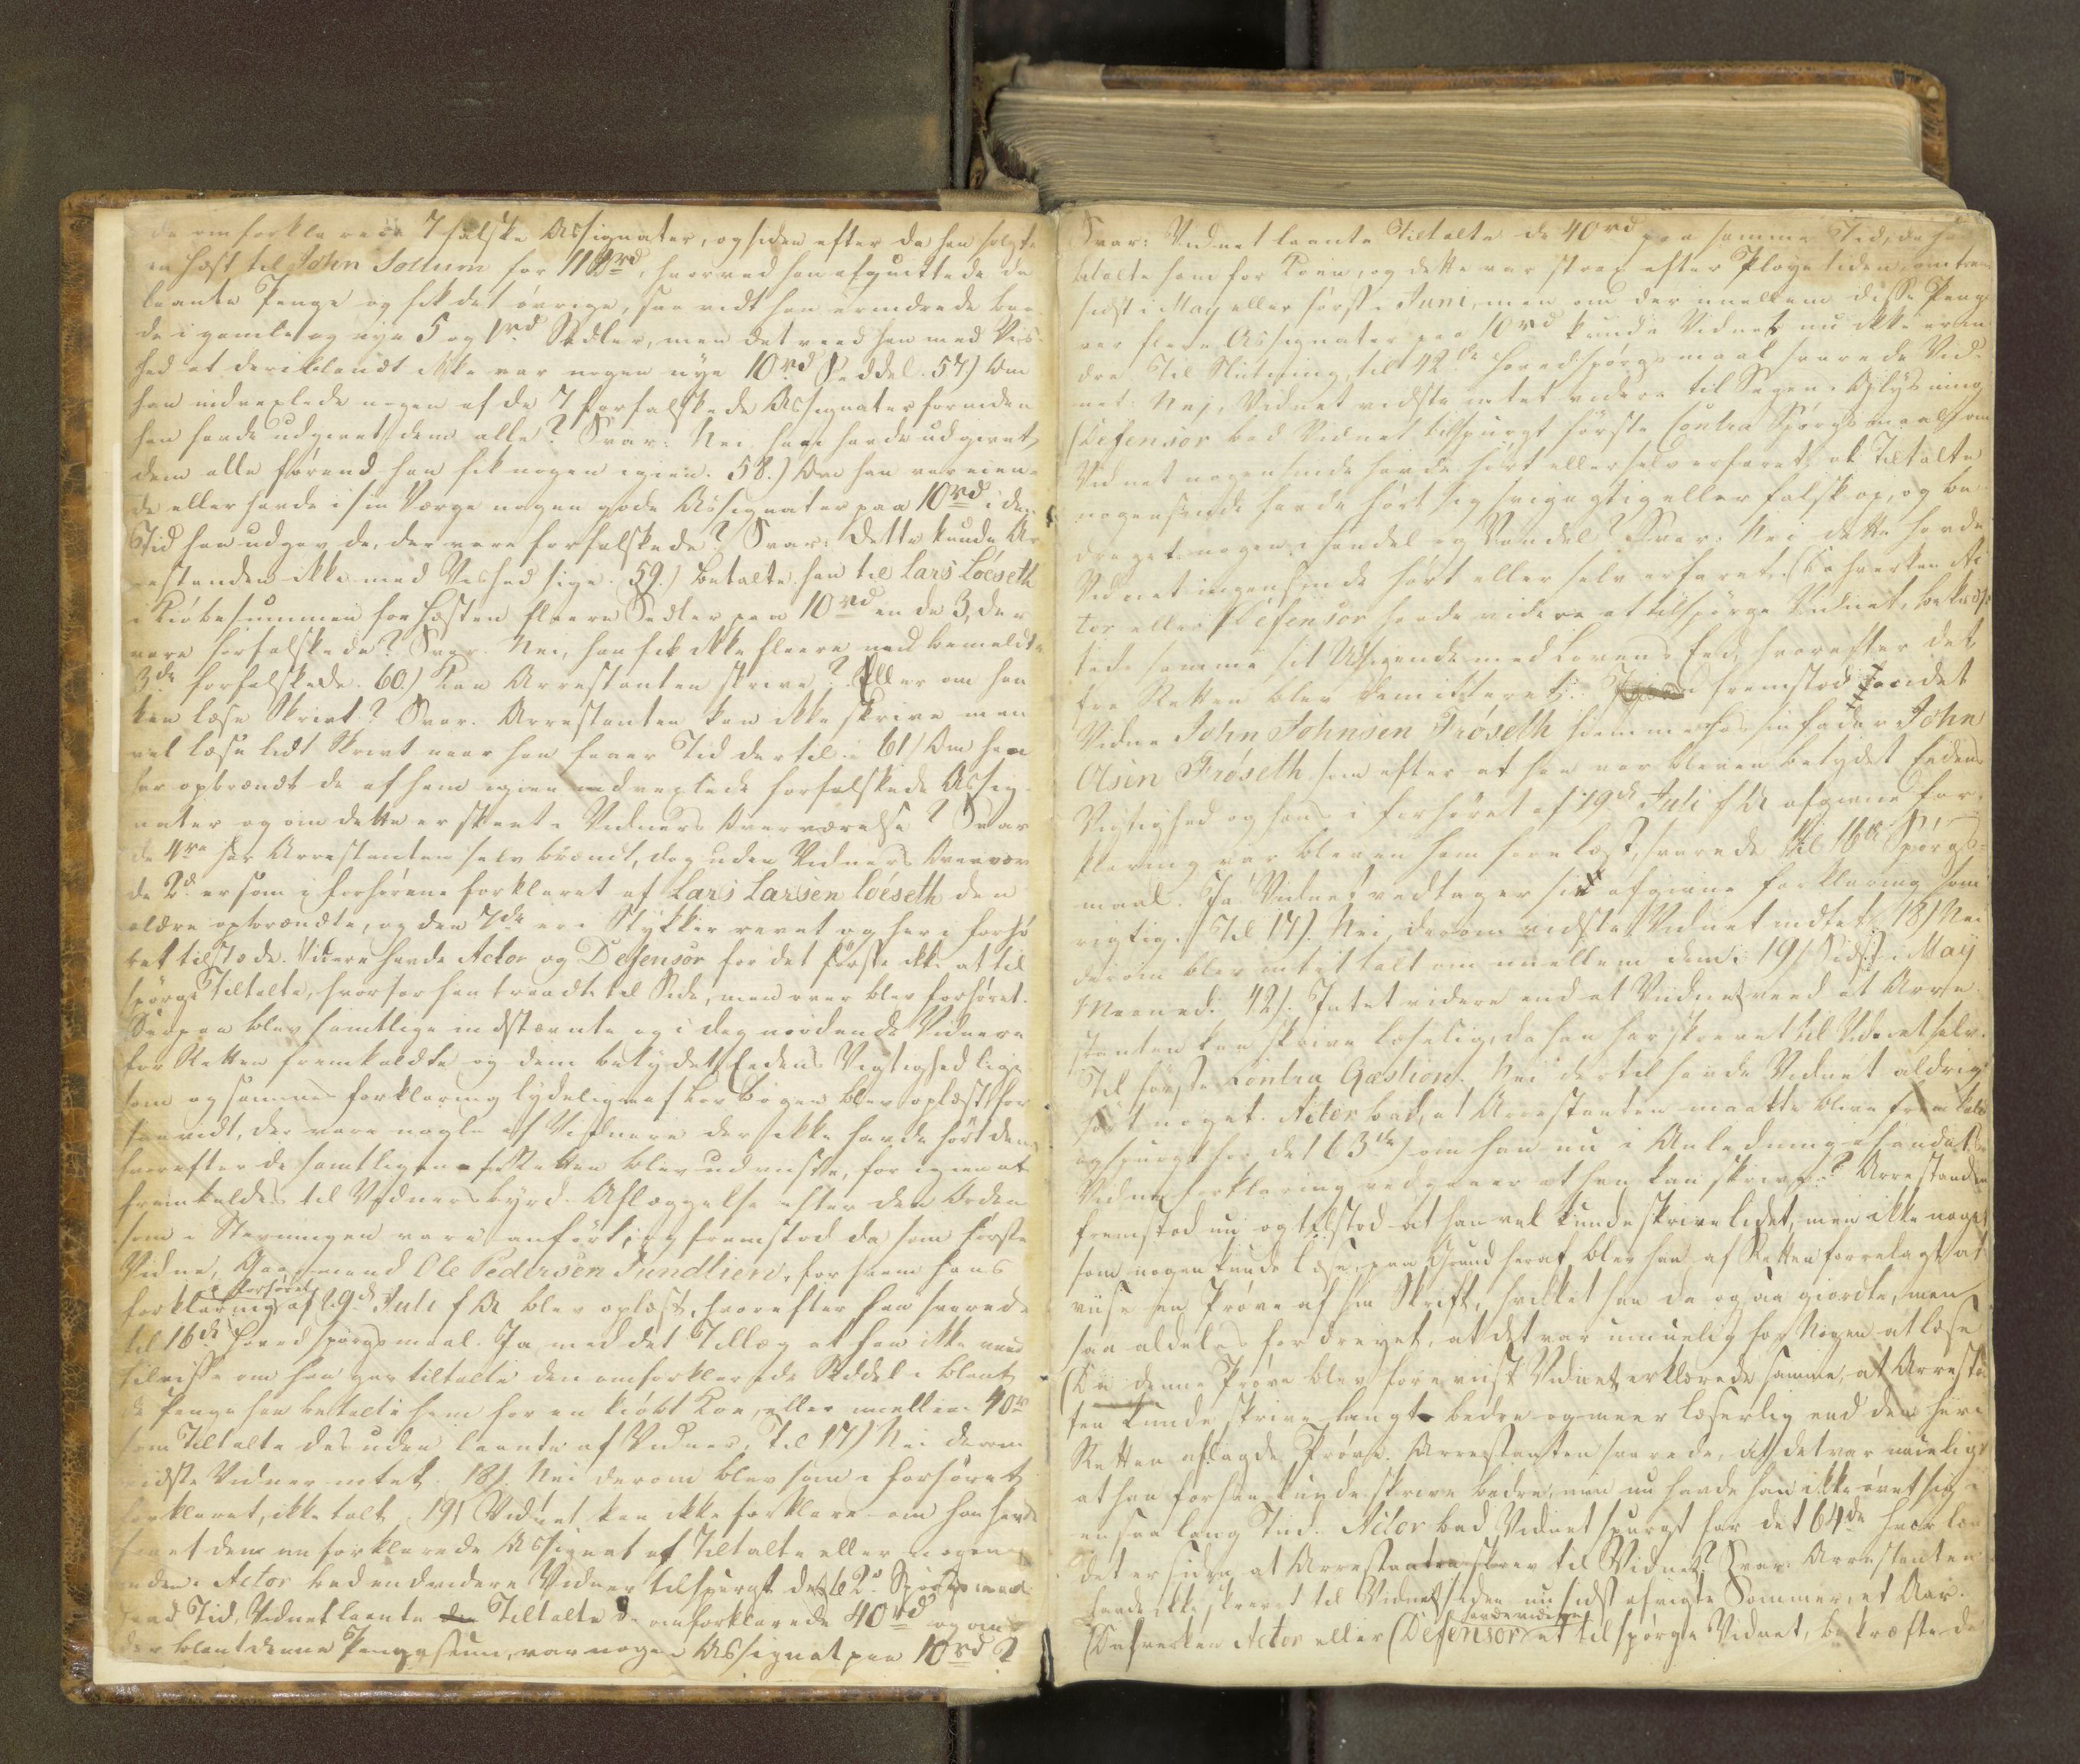 de omforklarede 7 falske Assignater, og siden efter da han solgte
en Hæst til John Sollum for 110rd, hvorved han afqvittede de
laante Penge og fik det øvrige, saa vidt han erindrede baa-
de i gamle og nye 5 og 1rd Sedler, men det veed han med Vis-
hed at deriblandt ikke var nogen nye 10rd Seddel. 57) Om
han indvexlede nogen af de 7 forfalskede Assignater forinden
han havde udgivet dem alle? Svar: Nei han havde udgivet
dem alle førend han fik nogen igien. 58.) Om han var eien-
de eller havde i sin Værge nogen gode Assignater paa 10rd i den
Tid han udgav de, der vare forfalskede? Svar: Dette kunde Ar-
restanden ikke med Vished sige. 59.) Betalte han til Lars Löeseth
i Kiøbesummen for Hæsten fleere Sedler paa 10rd en de 3, der
vare forfalskede? Svar. Nei, han fik ikke fleere end bemeldte
3de forfalskede. 60.) Kan Arrestanten skrive? Eller om han
kan læse Skrivt? Svar. Arrestanten kan ikke skrive men
vel læse lidt Skrivt naar han faaer Tid dertil. 61) Om han
har opbrændt de af ham igien indvexlede forfalskede Assig-
nater og om dette er skeet i Vidners Overværelse? Svar
de 4re har Arrestanten selv brændt, dog uden Vidners Overvær
de 2de er som i Forhørene forklaret af Lars Larsen Löeseth den
ældre opbrændte, og den 7de er i Stykker revet og her i Forhø-
ret tilstede. Videre havde Actor og Defensor for det første ikke at til
spørge Tiltalte, hvorfor han traadte til Side, men over blev forhøret.
Derpaa blev samtlige indstævnte og i dag mødende Vidner
for Retten fremkaldte og dem betydet Eedens Vigtighed lige
som og sammes Forklaring tydelig af Lov Bogen blev oplæst for
saavidt, der vare nogle af Vidnerne der ikke havde hørt den
hvorefter de samtlige af Retten blev udviiste, for igien at
fremkaldes til Vidnersbyrd Aflæggelse efter den Orden
som i Stevningen vare anført; og fremstod da som første
Vidne, Gaardmand Ole Pedersen Sundlien, for hvem hans
i Forhøret
Forklaring af 19de Juli f A blev oplæst, hvorefter han svarede
til 16de Hovedspørgsmaal. Ja, med det Tillæg at han ikke veed
tilvisse om han gav tiltalte den omforklarede Seddel i blant
de Penge han betalte ham for en kiøbt Koe, eller imellem 40rd
som Tiltalte desuden laante af Vidnet. Til 17) Nei derom
vidste Vidnet intet. 18). Nei derom blev som i Forhøret
forklaret, ikke talt. 19) Vidnet kan ikke forklare om han havde
faaet den omforklarede Assignat af Tiltalte eller nogen
anden. Actor bad endvidere Vidnet tilspurgt det 62de Spørgsmaal
hvad Tid, Vidnet laante Tiltalte de omforklarede 40rd og om
der blant denne Pengesum, var nogen Assignat paa 10rd?
Svar: Vidnet laante Tiltalte de 40rd paa samme Tid, da han
betalte ham for Koen, og dette var strax efter Pløyetiden, omtrent
sidst i May eller først i Juni, men om der imellem disse Penge
var flere Assignater paa 10rd kunde Vidnet nu ikke erin-
dre. Til Slutning, til 42de Hovedspørgsmaal svarede Vid-
net: Nej, Vidnet vidste intet videre til Sagens Oplysning
Defensor bad Vidnet tilspurgt første Contra Spørgsmaal om
Vidnet nogensinde havde hørt eller selv erfaret, at Tiltalte
nogensinde havde ført sig svigagtig eller falsk op, og be-
draget nogen i Handel og Vandel? Svar: Nei dette havde
Vidnet ingensinde hørt eller selv erfaret. Da hverken Ac-
tor eller Defensor havde videre at tilspørge Vidnet, bekræf-
tede samme sit Udsigende med Lovens Eed, hvorefter det
fra Retten blev demitteret. fremstod andet
Vidne John Johnsen Fröseth hiemme hos sin Fader John
Olsen Fröseth som efter at han var bleven betydet Eedens
Vigtighed og hans i Forhøret af 19de Juli f A afgivne For-
klaring var bleven ham forelæst, svarede til 16de Spørgs-
maal. Ja Vidnet vedtager sin afgivne Forklaring som
rigtig. Til 17). Nei, derom vidste Vidnet intet. 18) Nei
derom blev intet talt om imellem dem. 19) Sidst i May
Maaned. 42). Intet videre end at Vidnet veed at Arre-
stanten kan skrive læselig, da han har skrevet til Vidnet selv.
Til første Contra Qæstion. Nei dertil havde Vidnet aldrig
hørt noget. Actor bad, at Arrestanten maatte blive fremkaldt
og spurgt for det 63de om han nu i Anledning af andet
Vidnes Forklaring vedgaaer at han kan skrive? Arrestanden
fremstod nu og tilstod at han vel kunde skrive lidet, men ikke noget
som nogen kunde læse, paa Grund heraf blev han af Retten forelagt at
viise en Prøve af sin Skrift, hvilket han da ogsaa giordte, men
saa aldeles fordreyet, at det var umuelig for Nogen at læse
Da denne Prøve blev foreviist Vidnet erklærede samme, at Arrestan
ten kunde skrive langt bedre og meer læserlig end den her i
Retten aflagde Prøve. Arrestanten svarede, at det var mueligt
at han forhen kunde skrive bedre, men nu havde han ikke øvet sig i
en saa lang Tid. Actor bad Vidnet spurgt for det 64de hvor længe
det er siden at Arrestanten skrev til Vidnet? Svar. Arrestanten
havde ikke skrevet til Vidnet siden nu sidst afvigte Sommer, et Aar.
havde videre
Da hverken Actor eller Defensor at tilspørge Vidnet, bekræftede